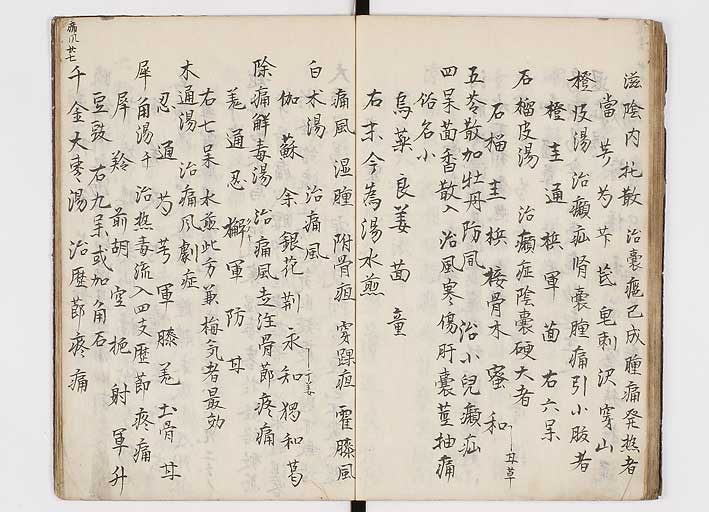 滋陰内托散 治囊癰已成腫痛発熱者
當 芎 芍 芐 芪 皂刺 沢 穿山
橙皮湯 治癩疝腎囊腫痛引小腹者
橙 圭 通 梹 軍 茴 右六呆
石榴皮湯 治癩症陰囊硬大者
石榴 圭 梹 接骨木 蜜 和
五苓散加牡丹防風 治小児癩疝
四呆茴香散 治風寒傷肝囊莖抽痛
俗名小
烏薬 良姜 茴 童
右末今為湯水煎
大
痛風 湿腫 附骨疽 穿踝疽 霍膝風
白朮湯 治痛風
伽 蘇 余 銀花 荆 永 和 猲 和 葛
除痛解毒湯 治痛風走注骨節疼痛
羗 通 忍 獬 軍 防 甘
右七呆水煎此方兼梅気者最効
木通湯 治痛風劇症
忍 通 芍 芎 軍 膝 羗 土骨 甘
犀角湯千 治熱毒流入四支歴節疼痛
犀 羚 前胡 空 梔 射 軍 升
豆豉 右九呆或加角石
千金大棗湯 治歴節疼痛